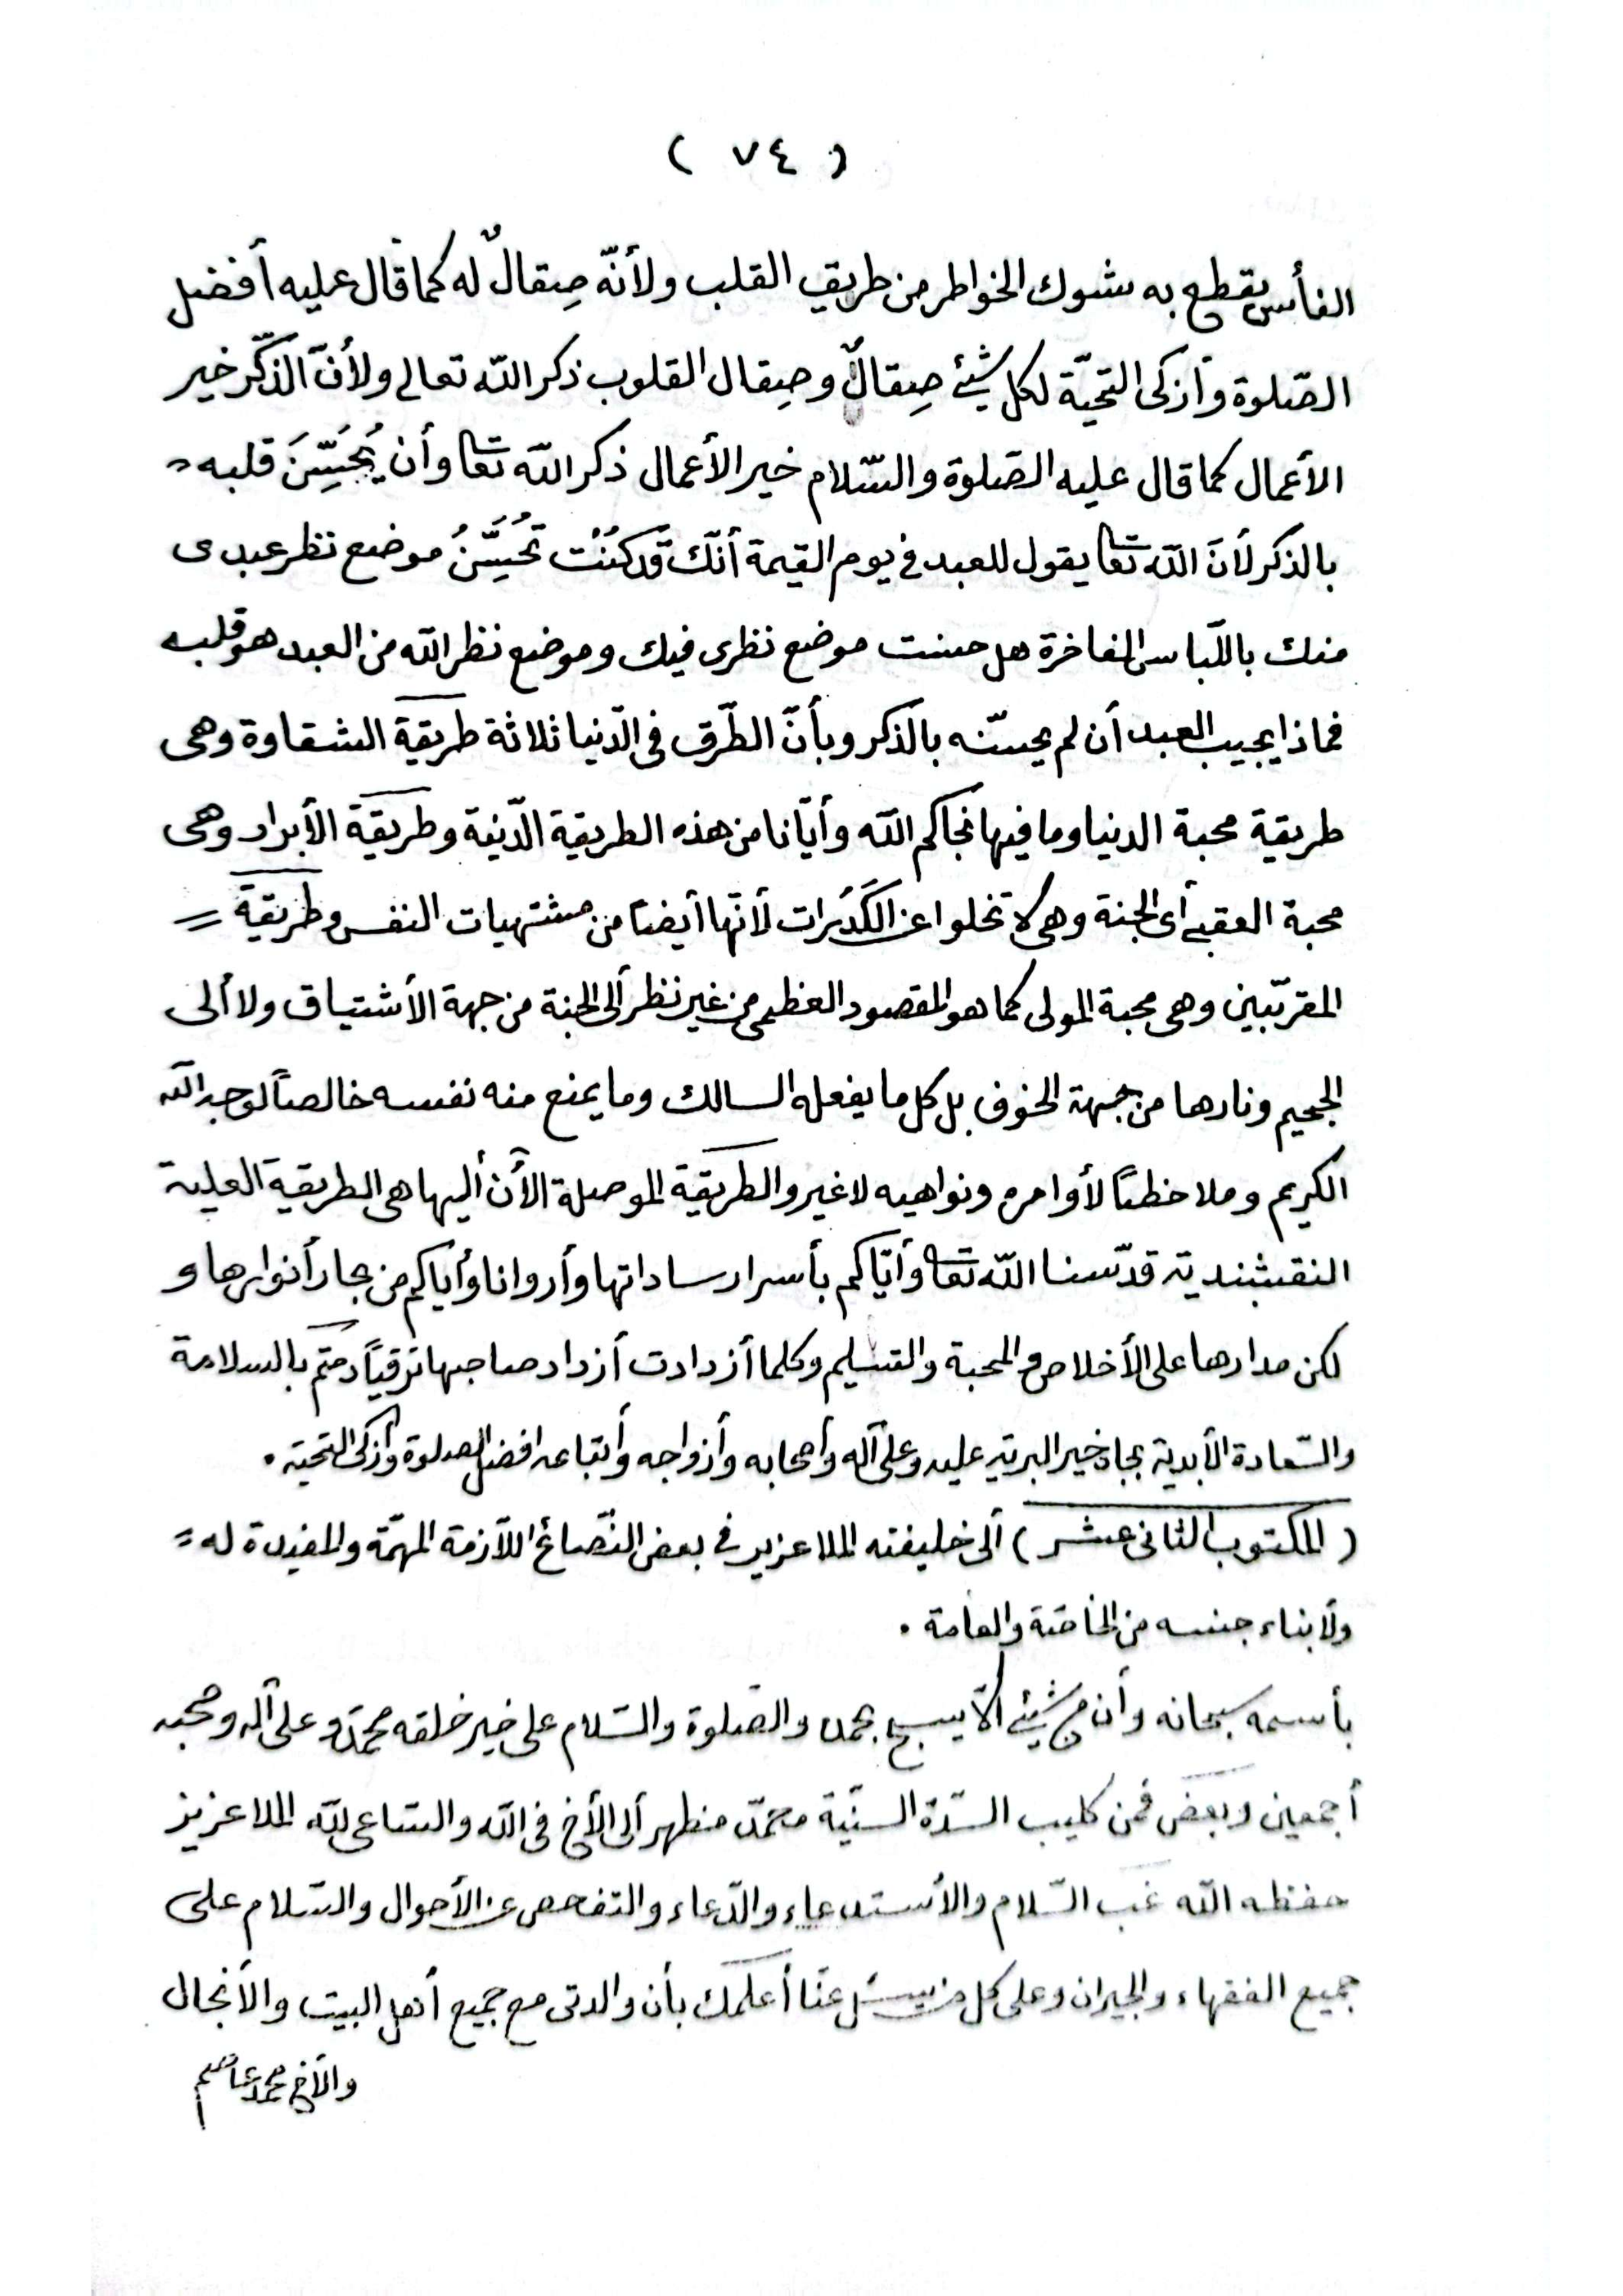 ( ٧٤ )
الفأس يقطع به شوك الخواطر من طريق القلب ولأنّه صِقالٌ له كما قال عليه أفضل
الصّلوة وأزكى التّحيّة لكل شيئ صِقالٌ وصِقال القلوب ذكر الله تعالى ولأنّ الذّكر خير
الأعمال كما قال عليه الصّلوة والسّلام خير الأعمال ذكر الله تعا وأن يُحَسِّنَ قلبه
بالذكر لأنّ الله تعا يقول للعبد في يوم القيمة أنّك قد كنت تُحَسِّنُ موضع نظر عبدى
منك باللّباس الفاخرة هل حسنت موضع نظرى فيك وموضع نظر الله من العبد هو قلبه
فماذا يجيب العبد أن لم يحسّنه بالذّكر وبأنّ الطّرق فى الدّنيا ثلاثة طريقة الشقاوة وهى
طريقة محبة الدنيا وما فيها نجاكم الله وأيّانا من هذه الطريقة الدّنية وطريقة الأبرار وهى
محبة العقبى أى الجنة وهى لا تخلوا عن الكَدَرات لأنّها أيضاً من مشتهيات النفس وطريقة
المقرّبين وهى محبة المولى كما هو المقصود العظمى من غير نظر ألى الجنة من جهة الأشتياق ولا ألى
الجحيم ونارها من جهة الخوف بل كل ما يفعله السالك وما يمنع منه نفسه خالصاً لوجه الله
الكريم وملاحظاً لأوامره ونواهيه لا غير والطريقة الموصلة الأن أليها هى الطريقة العلية
النقشبندية قدّسنا الله تعا وأيّاكم بأسرار ساداتها وأروانا وأيّاكم من بحار أنوارها و
لكن مدارها على الأخلاص والمحبة والتسليم وكلما أزدادت أزداد صاحبها ترقياً دمتم بالسلامة
والسّعادة الأبدية بجاه خير البرية عليه وعلى آله وأصحابه وأزواجه وأتباعه افضل الصلوة وأزكى التحية .
( المكتوب الثانى عشر ) ألى خليفته الملا عزيز في بعض النّصائح اللّازمة المهمّة والمفيدة له
ولأبناء جنسه من الخاصّة والعامة .
بأسمه سبحانه وأن من شيئ ألّا يسبح بحمده والصّلوة والسّلام على خير خلقه محمّد وعلى آله وصحبه
أجمعين وبعض فمن كليب السّدّة السنّية محمّد مظهر ألى الأخ فى الله والساعى لله الملا عزيز
حفظه الله غب السّلام والأستدعاء والدّعاء والتفحص عن الأحوال والسّلام على
جميع الفقهاء والجيران وعلى كل من يسئل عنّا أعلمك بأن والدتى مع جميع أهل البيت والأنجال
والأخ محمد عاصم